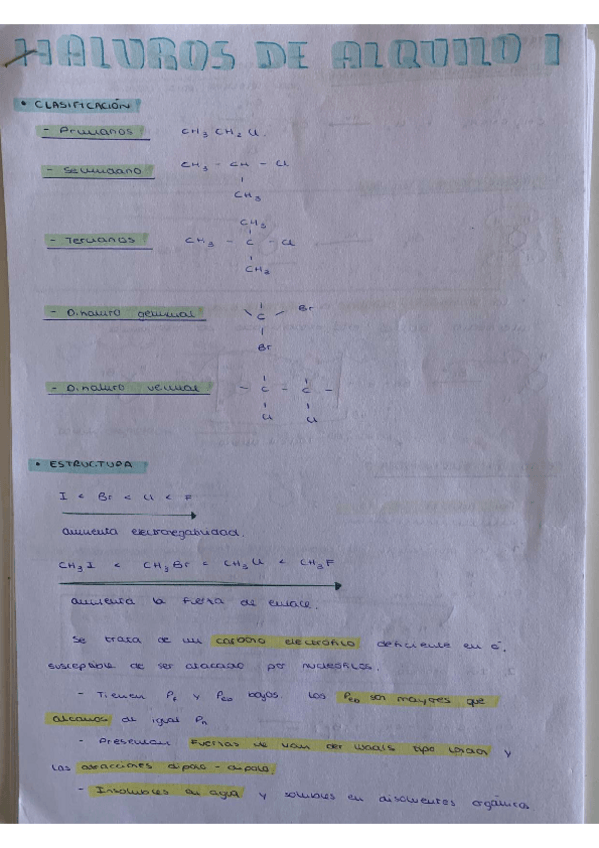 HALUROS DE ALQUILO 1
• CLASIFICACIÓN
- Primarios CH3 CH2 Cl.
- Secundario CH3 - CH - Cl
CH3
CH3
- Terciarios CH3 - C - Cl
CH3
- Dihaluro geminal C Br
Br
- Dihaluro vecinal - C - C -
Cl Cl
• ESTRUCTURA
I < Br < Cl < F
aumenta electronegatividad.
CH3I < CH3Br < CH3Cl < CH3F
aumenta la fuerza de enlace.
Se trata de un carbono electrófilo deficiente en e-,
susceptible de ser atacado por nucleófilos.
- Tienen Pf y Peb bajos. Los Peb son mayores que
alcanos de igual Pm
- Presentan fuerzas de Van der Waals tipo London y
las atracciones dipolo - dipolo.
- Insolubles en agua y solubles en disolventes orgánicos.